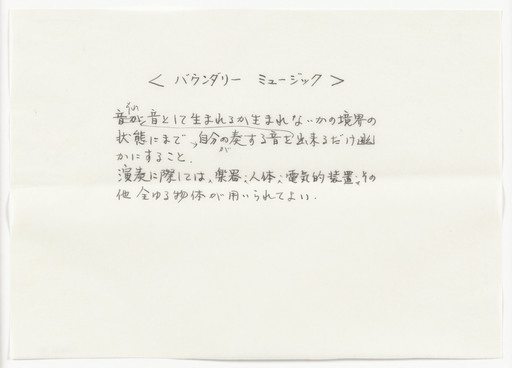 < バウンダリー ミュージック >
音が音として生まれるか生まれないかの境界の
状態にまで、自分の奏する音を出来るだけ幽
かにすること.
演奏に際しては、楽器、人体、電気的装置、その
他 全ゆる物体が用いられてよい.